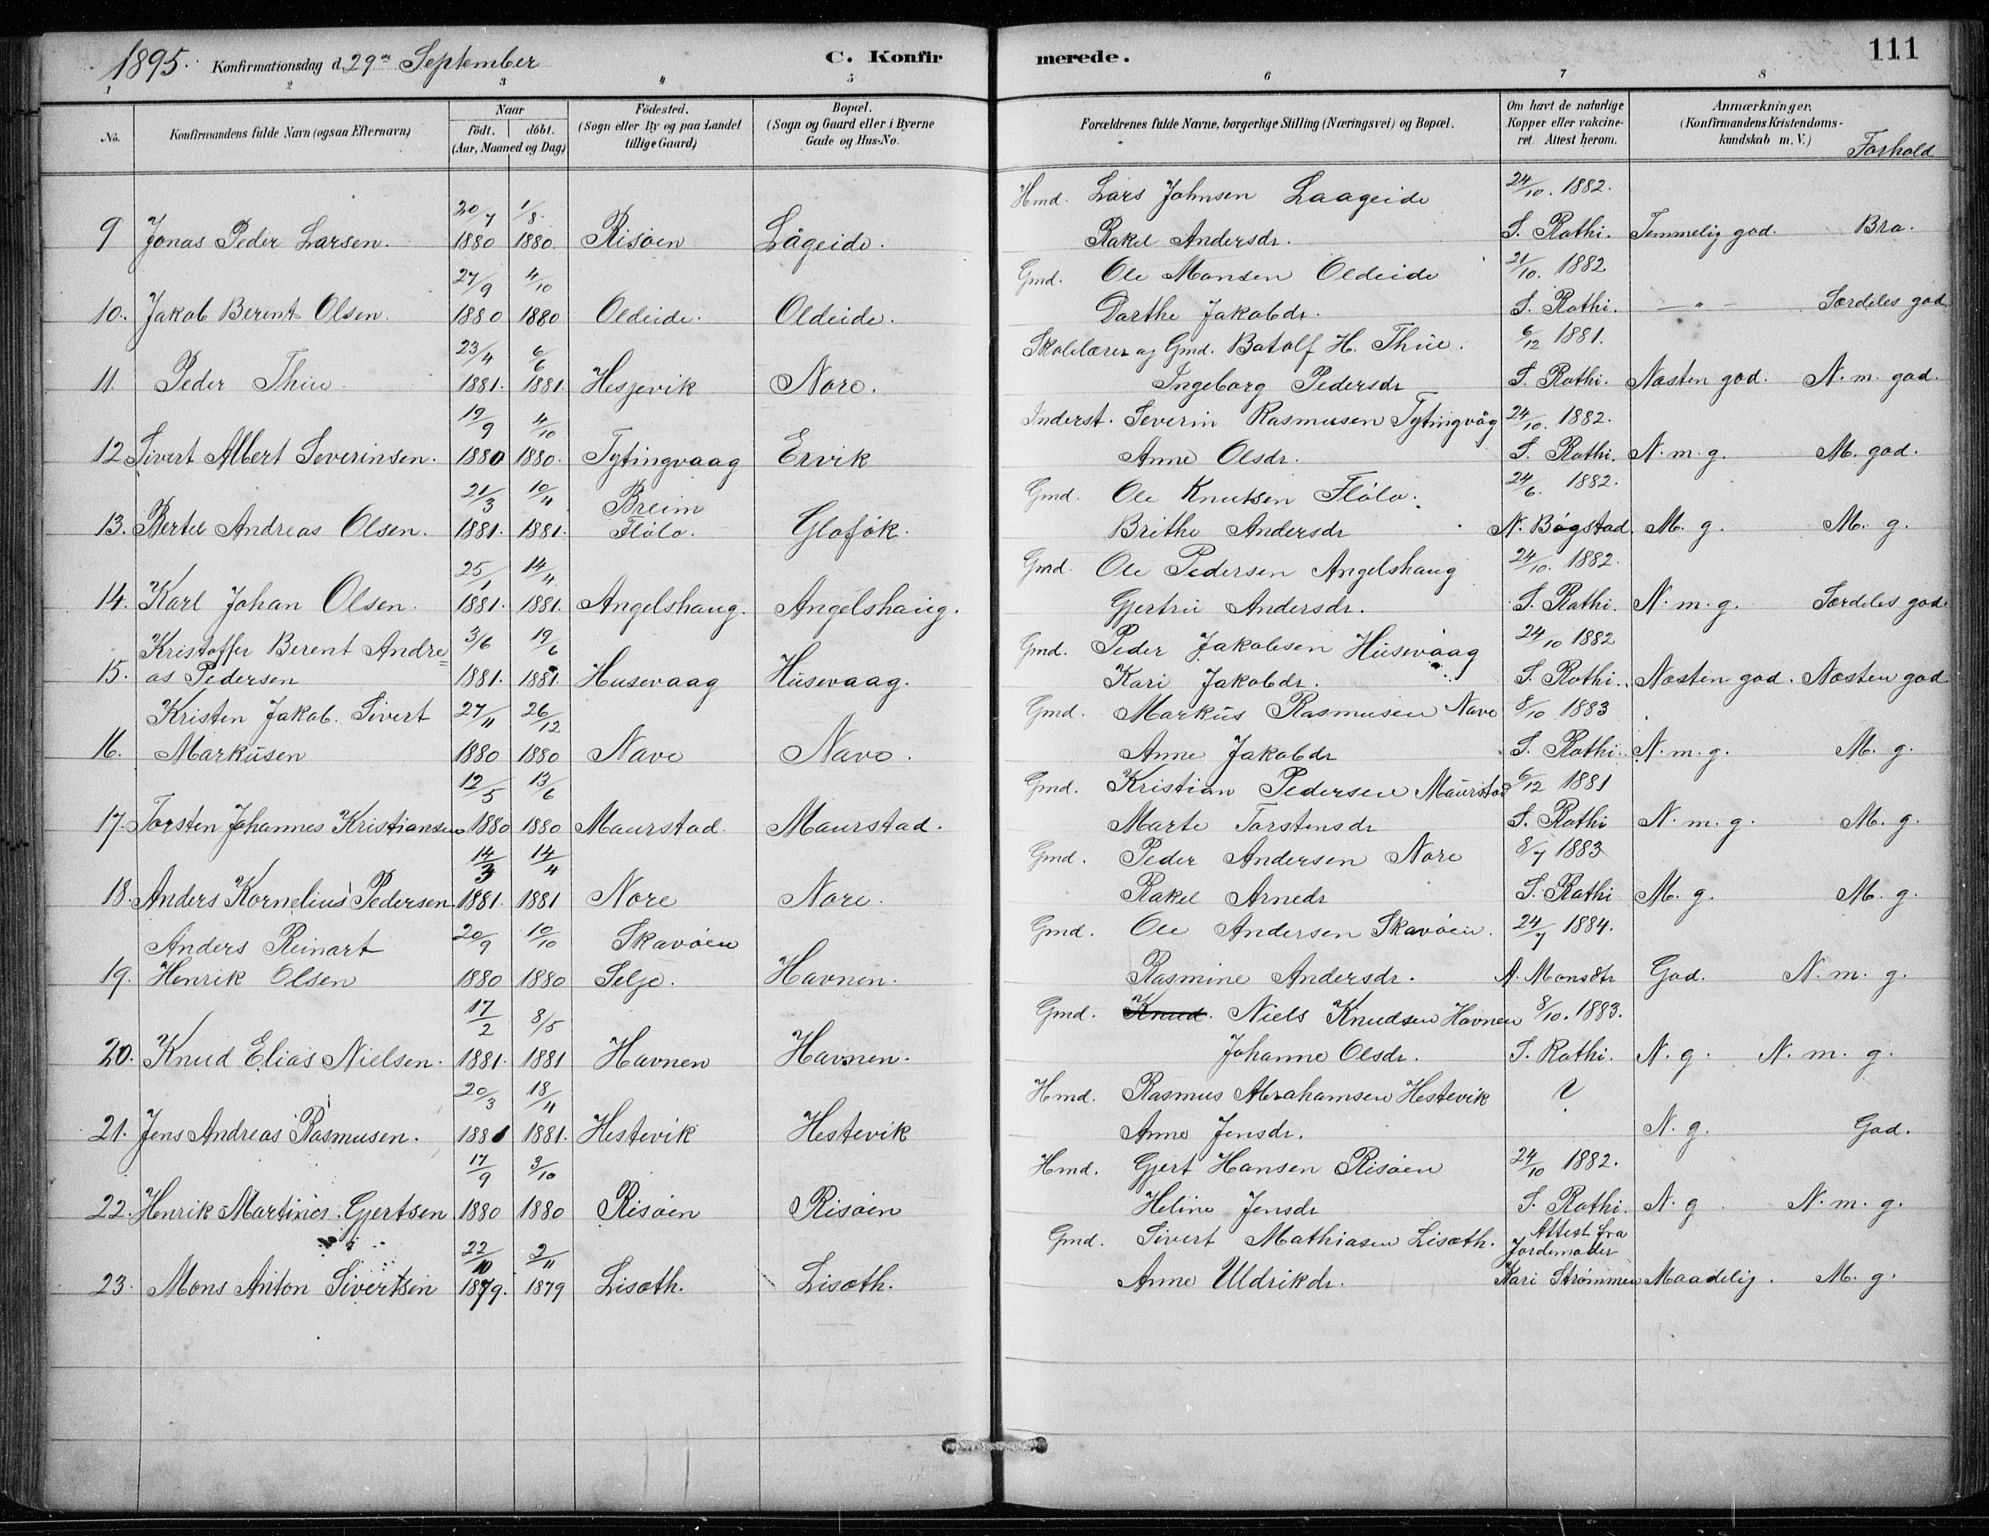 1895. Konfirmationsdag d. 29de September C. Konfirmerede. 111
1 2 3 4 5 6 7 8
No. Konfirmandens fulde Navn (ogsaa Efternavn) Naar født. døbt. (Aar, Maaned og Dag) Födested. (Sogn eller By og paa Landet tillige Gaard) Bopæl. (Sogn og Gaard eller i Byerne Gade og Hus-No. Forældrenes fulde Navne, borgerlige Stilling (Næringsvei) og Bopæl. Om havt de naturlige Kopper eller vakcineret. Attest herom. Anmærkninger, (Konfirmandens Kristendomskundskab m. V.) Forhold
20/7 1/8. Hmd. Lars Johnsen Laageide 24/10. 1882.
9 Jonas Peder Larsen. 1880 1880. Risöen Lågeide. Rakel Andersdr. S. Rothi. Temmelig god. Bra.
27/9 4/10 Gmd. Ole Monsen Oldeide 21/10. 1882
10. Jakob Berent Olsen. 1880 1880 Oldeide. Oldeide. Dorthe Jakobdr. S. Rothi. — " — Særdeles god
23/4 6/6 Skolelærer og Gmd. Botolf H. Thue. 6/12 1881.
11. Peder Thue 1881. 1881. Hesjevik Nore. Ingeborg Pedersdr S. Rothi. Næsten god. N. m. god.
19/9 4/10 Inderst. Severin Rasmusen Tytingvåg 24/10. 1882.
12 Sivert Albert Severinsen. 1880 1880. Tytingvaag Ervik Anne Olsdr. S. Rothi. N. m. g. M. god.
21/3 10/4 Breim Gmd. Ole Knutsen Flölo. 24/6. 1882.
13. Bertel Andreas Olsen. 1881. 1881. Flölo. Glofök. Brithe Andersdr N. Bögstad. M. g. M. g.
25/1 14/4. Gmd. Ole Pedersen Angelshaug 24/10. 1882.
14. Karl Johan Olsen. 1881. 1881. Angelshaug. Angelshaug. Gjertrü Andersdr. S. Rothi. N. m. g. Særdeles god.
Kristoffer Berent Andre= 3/6 19/6 Gmd. Peder Jakobsen Husevåag 24/10 1882
15. as Pedersen 1881. 1881. Husevaag Husevaag. Kari Jakobdr. S. Rothi. Næsten god. Næsten god
Kristen Jakob. Sivert 27/11 26/12 Gmd. Markus Rasmusen Nave 8/10 1883
16. Markusen 1880 1880 Nave Nave. Anne Jakobdr S. Rothi. N. m. g. M. g.
12/5 13/6 Gmd. Kristian Pedersen Maurstad 6/12 1881
17. Torsten Johannes Kristiansen 1880 1880 Maurstad. Maurstad. Marte Torstensdr S. Rothi N. m. g. M. g.
14/3 14/4 Gmd. Peder Andersen Nore 8/7 1883
18. Anders Kornelius Pedersen 1881. 1881 Nore Nore. Rakel Arnedr S. Rothi M. g. M. g.
Anders Reinart 20/9 10/10 Skavöen Gmd. Ole Andersen Skavöen. 24/7 1884.
19. Henrik Olsen 1880 1880 Selje. Havnen. Rasmine Andersdr. A. Monsdtr God. N. m. g.
17/2 8/5 Gmd. Knud. Niels Knudsen Havnen 8/10. 1883.
20. Knud Elias Nielsen. 1881. 1881 Havnen Havnen. Johanne Olsdr. S. Rothi. N. g. N. m. g.
20/3 18/4 Hmd. Rasmus Abrahamsen Hestevik ?
21. Jens Andreas Rasmusen. 1881 1881. Hestevik Hestevik Anne Jensdr. N. g. God.
17/9 3/10 Hmd. Gjert Hansen Risöen 24/10 1882.
22. Henrik Martinus. Gjertsen 1880 1880 Risöen Risöen Heline Jensdr S. Rothi. N. g. N. m. g.
22/10 2/11 Gmd. Sivert Mathiasen Lisæth. Attest fra Jordemoder
23. Mons Anton Sivertsen 1879. 1879 Lisæth. Lisæth. Anne Uldrikdr. Kari Strömmen Maadelig. M. g.